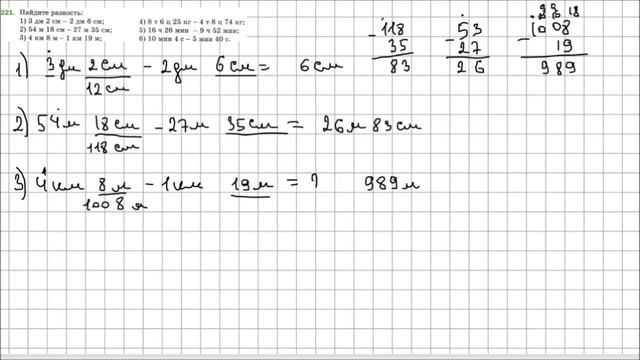 221. Найдите разность:
1) 3 дм 2 см – 2 дм 6 см;
2) 54 м 18 см – 27 м 35 см;
3) 4 км 8 м – 1 км 19 м;
4) 8 т 6 ц 25 кг – 4 т 8 ц 74 кг;
5) 16 ч 26 мин – 9 ч 52 мин;
6) 10 мин 4 с – 5 мин 40 с.
118
- 35
83
53
- 27
26
9 9 18
1008
- 19
989
1) 3 дм 2 см - 2 дм 6 см = 6 см
12 см
2) 54 м 18 см - 27 м 35 см = 26 м 83 см
118 см
3) 4 км 8 м - 1 км 19 м = ? 989 м
1008 м